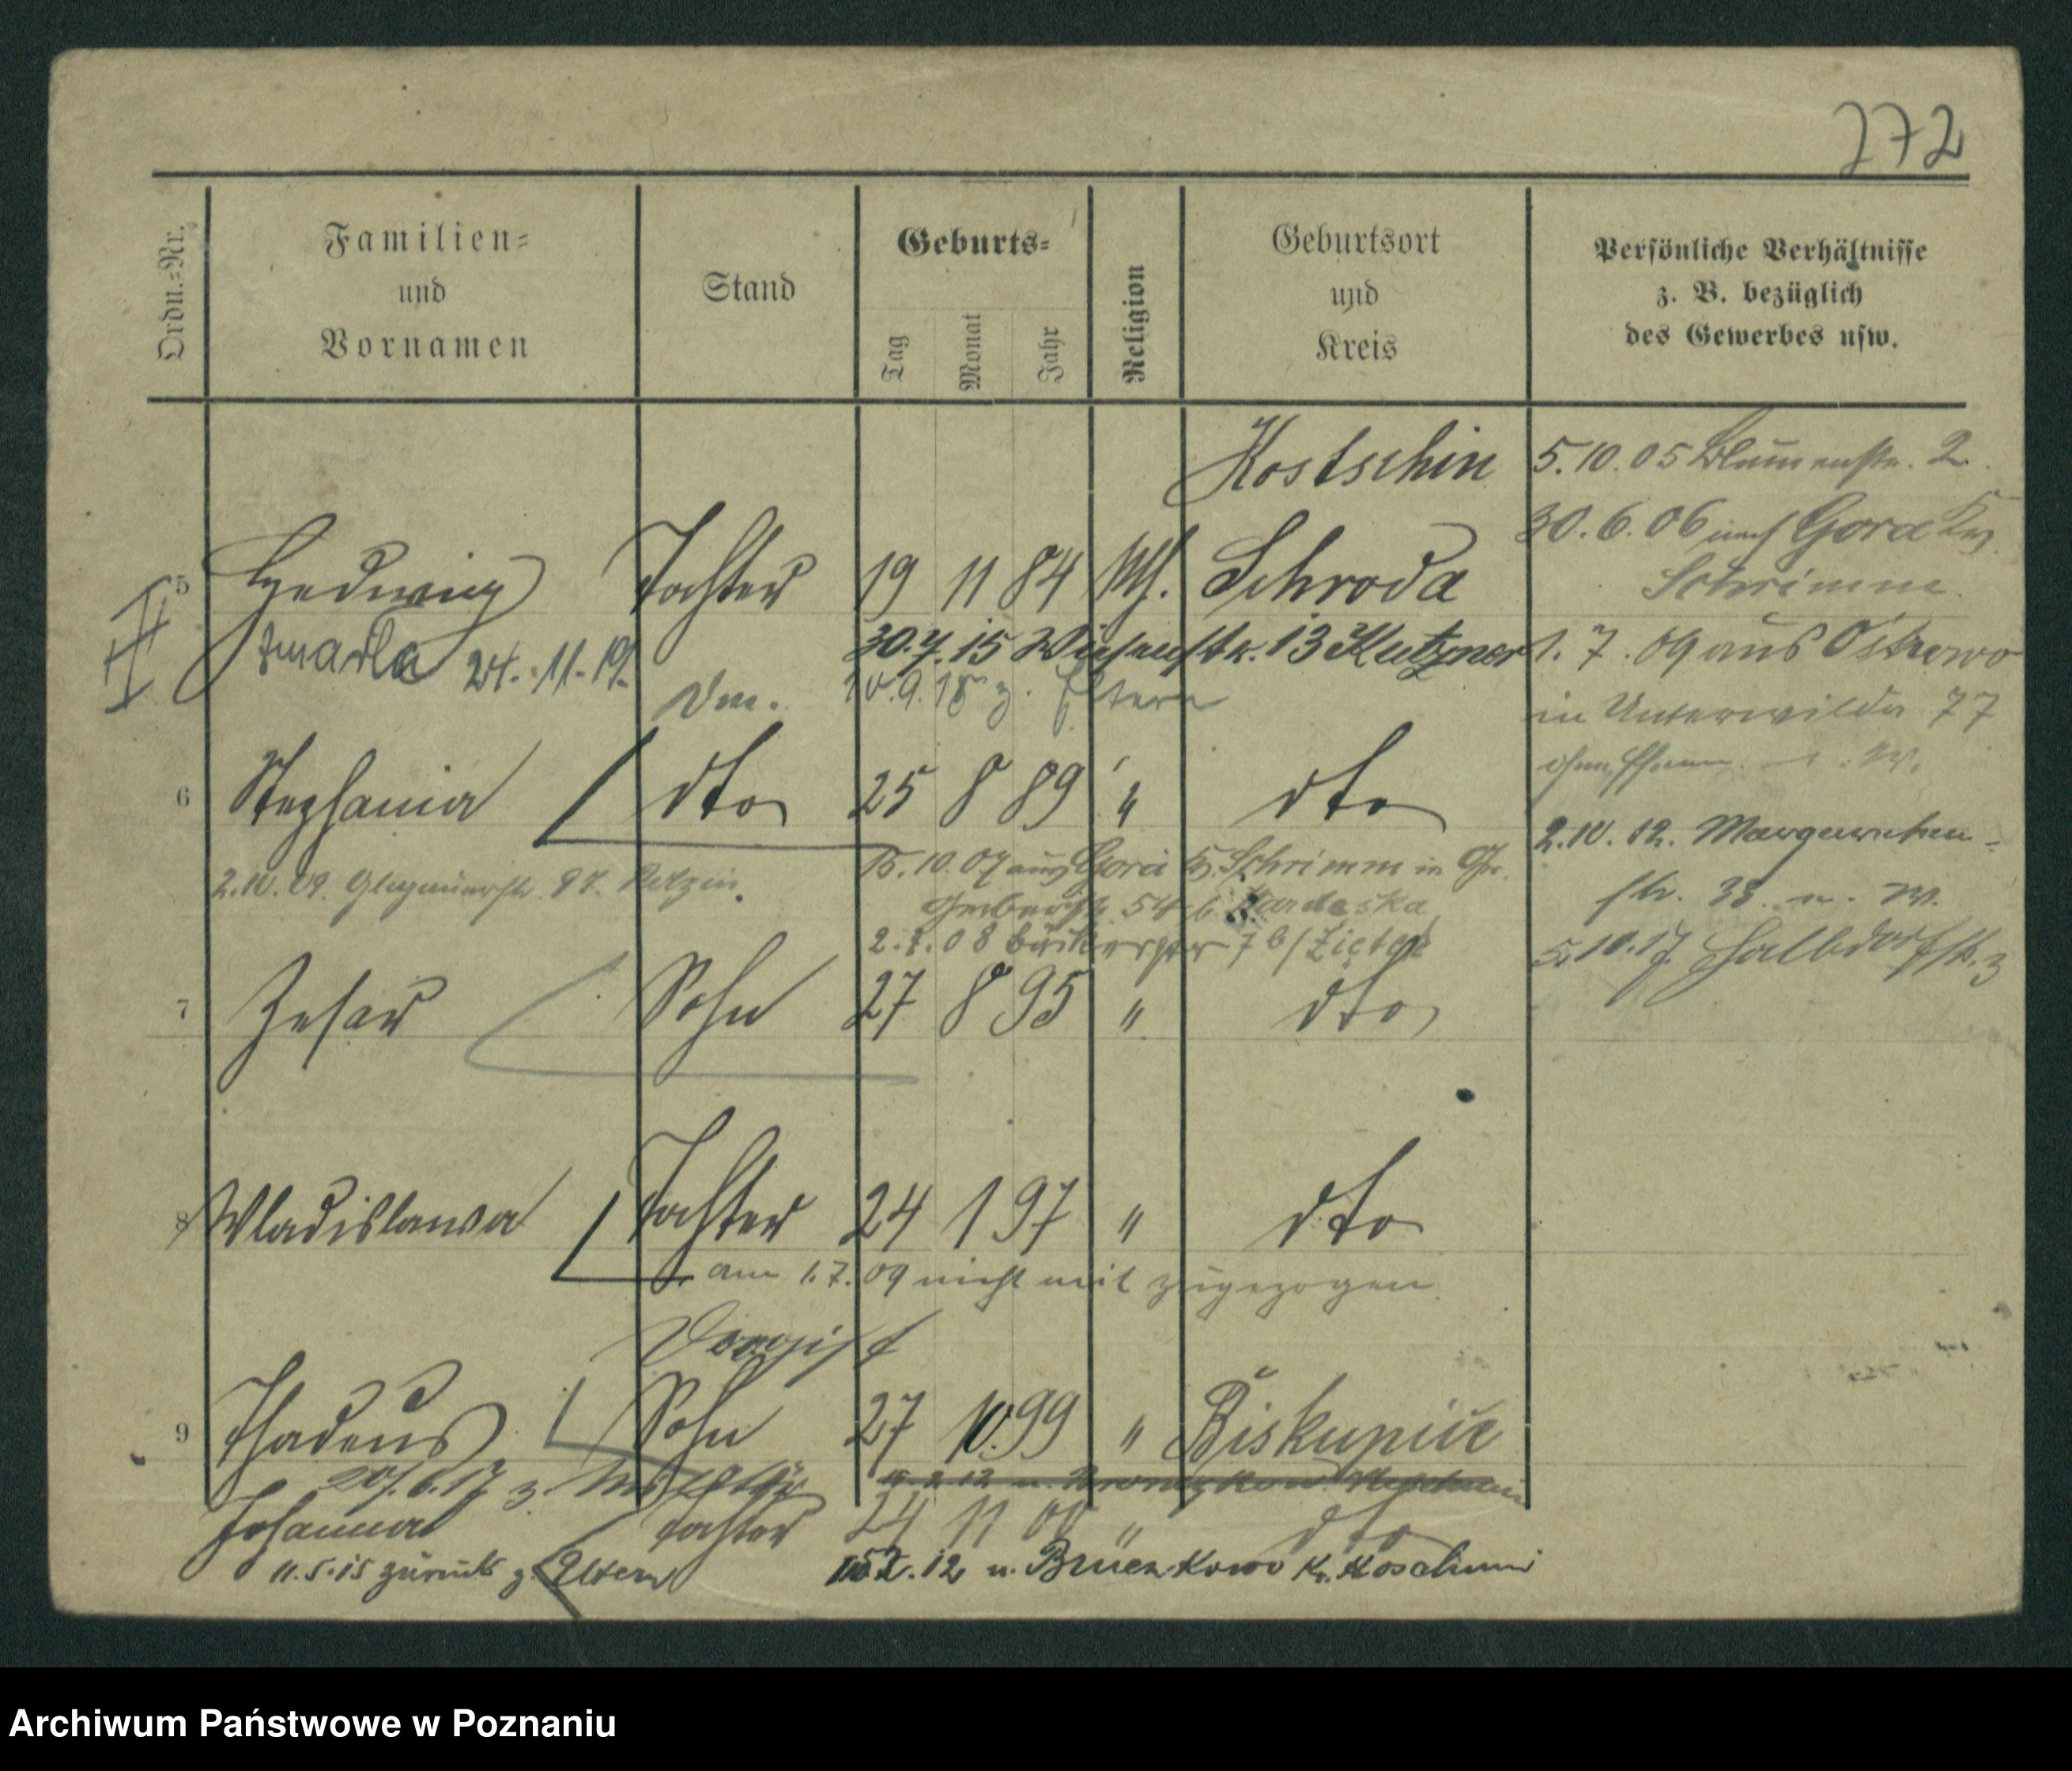 272
Ordn.-Nr.
Familien-
und
Vornamen
Stand
Geburts-
Tag
Monat
Jahr
Religion
Geburtsort
und
Kreis
Persönliche Verhältnisse
z. B. bezüglich
des Gewerbes usw.
Kostschin
5.10.05 Blumenstr. 2.
30.6.06 nach Gora Krs.
Schrimm.
5 Hedwig Tochter 19 11 84 kth. Schroda
zmarła 24.11.19.
30.7.15 Wiesenstr. 13 Kutzner
1.7.09 aus Ostrowo
Dm. 10.9.18 z. Eltern
in Unterwilda 77
6 Stephania dto 25 8 89 " dto
2.10.12. Margareten-
str. 33. u. W.
2.10.09. Glogauerstr. 97.
15.10.07 aus Gora Kr. Schrimm in Gr.
Gerberstr. 54 b.
2.1.08 Bäckerstr 7 b/Zietek
5.10.17. Halbdorfstr. 3
7 Cesar Sohn 27 8 95 " dto
8 Wladislawa Tochter 24 1 97 " dto
am 1.7.09 nicht mit zugezogen.
Drogist
9 Thadeus Sohn 27 10. 99 " Biskupice
20.6.17 z. Militär
Johanna Tochter 24 11 00 " dto
11.5.15 zurück z. Eltern
15.2.12 n. Bruczkowo Kr. Koschmin
Archiwum Państwowe w Poznaniu